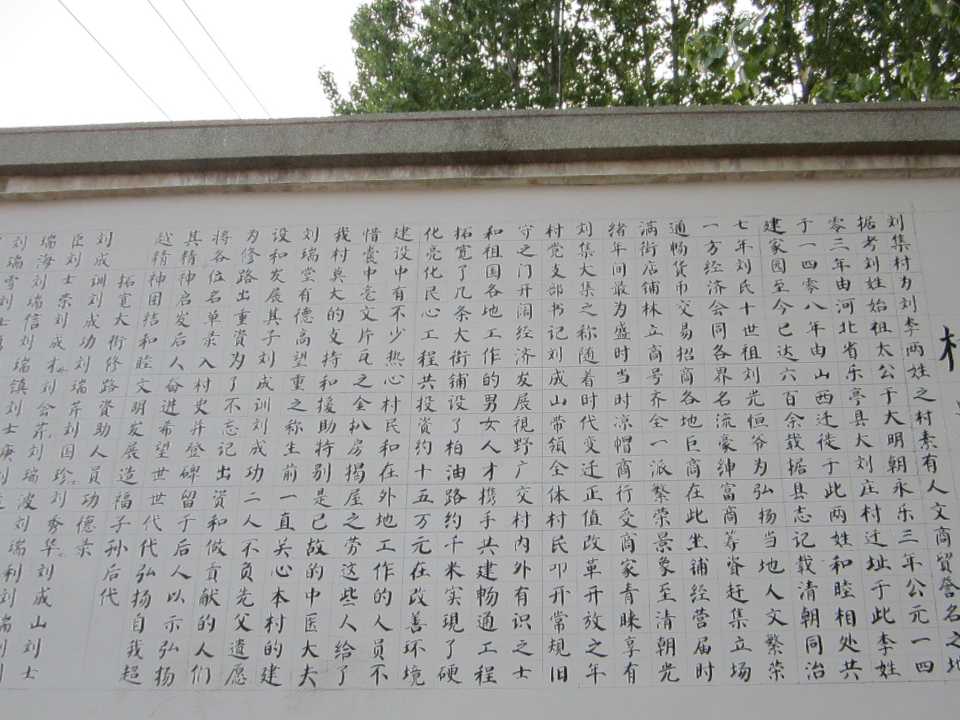 刘集村为刘李两姓之村素有人文商贸誉名之地
据考刘姓始祖太公于大明朝永乐三年公元一四
零三年由河北省乐亭县大刘庄村迁址于此李姓
于一四零八年由山西迁徙于此两姓和睦相处共
建家园至今已达六百余载据县志记载清朝同治
七年刘氏十世祖刘光恒爷为弘扬当地人文繁荣
一方经济会同各界名流豪绅富商筹资赶集立场
通畅货币交易招商各地巨商在此坐铺经营届时
满街店铺林立商号齐全一派繁荣景象至清朝光
绪年间最为盛时当时凉帽商行受商家青睐享有
刘集大集之称随着时代变迁正值改革开放之年
村党支部书记刘成山带领全体村民叩开常规旧
守之门开阔经济发展視野广交村内外有识之士
和祖国各地工作的男女人才携手共建畅通工程
拓宽了几条大街铺设了柏油路约千米实現了硬
化亮化民心工程共投資约十五万元在改善环境
建设中有不少热心村民和在外地工作的人员不
惜中文片瓦之全扒房揭屋之劳这些人给了
我村莫大的支持和援助特别是已故的中医大夫
刘瑞堂有德高望重之称生前一直关心本村的建
设和发展其子刘成训刘成功二人不负先父遗愿
为修路出重資为了不忘记出資和做贡献的人们
将各位名单录入村史并登碑留于后人以示弘扬
其精神启发后人奋进希望世世代代弘扬自我超
越精神团结和睦文明发展造福子孙后代
拓宽大街修路資助人员功德录
刘成训刘成功刘瑞芹刘国珍刘秀华刘成山刘士
臣刘士荣刘成
瑞海刘瑞信刘